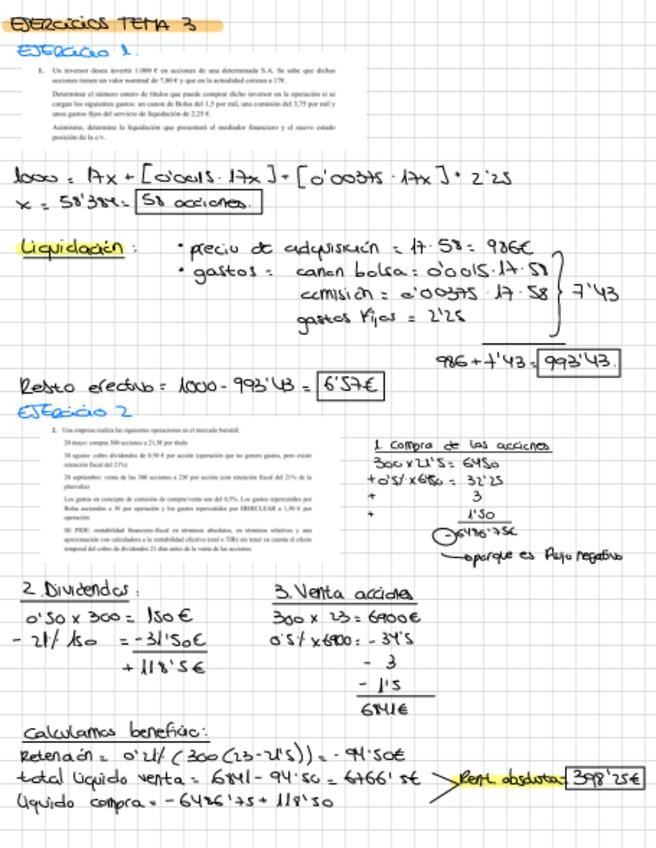 EJERCICIOS TEMA 3
EJERCICIO 1.
1. Un inversor desea invertir 1.000 € en acciones de una determinada S.A. Se sabe que dichas
acciones tienen un valor nominal de 7,80 € y que en la actualidad cotizan a 17€.
Determinar el número entero de títulos que puede comprar dicho inversor en la operación si se
cargan los siguientes gastos: un canon de Bolsa del 1,5 por mil, una comisión del 3,75 por mil y
unos gastos fijos del servicio de liquidación de 2,25 €.
Asimismo, determine la liquidación que presentará el mediador financiero y el nuevo estado
posición de la c/v.
1000 = 17x + [0'0015 · 17x] + [0'00375 · 17x] + 2'25
x = 58'384 = 58 acciones.
Liquidación: · precio de adquisición = 17·58 = 986€
· gastos = canon bolsa = 0'0015·17·58
comisión = 0'00375 · 17·58
gastos fijos = 2'25
7'43
986 + 7'43 = 993'43.
Resto efectivo = 1000 - 993'43 = 6'57€
EJERCICIO 2
2. Una empresa realiza las siguientes operaciones en el mercado bursátil:
20 mayo: compra 300 acciones a 21,5€ por título
30 agosto: cobro dividendos de 0.50 € por acción (operación que no genera gastos, pero existe
retención fiscal del 21%)
20 septiembre: venta de las 300 acciones a 23€ por acción (con retención fiscal del 21% de la
plusvalía)
Los gastos en concepto de comisión de compra/venta son del 0,5%. Los gastos repercutidos por
Bolsa ascienden a 3€ por operación y los gastos repercutidos por IBERCLEAR a 1,50 € por
operación.
SE PIDE: rentabilidad financiero-fiscal en términos absolutos, en términos relativos y una
aproximación con calculadora a la rentabilidad efectiva (real o TIR) sin tener en cuenta el efecto
temporal del cobro de dividendos 21 días antes de la venta de las acciones.
1. Compra de las acciones
300 x 21'5 = 6450
+ 0'5% x 6450 = 32'25
+ 3
+ 1'50
- 6486'75€
porque es flujo negativo
2. Dividendos:
0'50 x 300 = 150€
- 21% 150 = - 31'50€
+ 118'5€
3. Venta acciones
300 x 23 = 6900€
0'5% x 6900 = - 34'5
- 3
- 1'5
6861€
Calculamos beneficio:
Retención = 0'21% (300(23-21'5)) = - 94'50€
total líquido venta = 6861 - 94'50 = 6766'5€
líquido compra = - 6486'75 + 118'50
Rent. absoluta = 398'25€